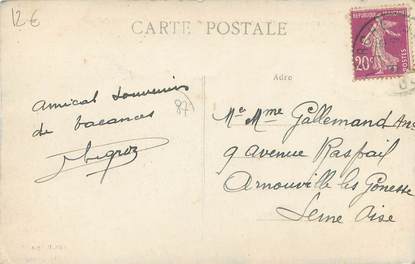 12€
CARTE POSTALE
REPUBLIQUE FRANÇAISE
20c
POSTES
Adre
Amical souvenir
de vacances
87
Mr Mme Gallemand
9 avenue Raspail
Arnouville les Gonesse
Seine Oise